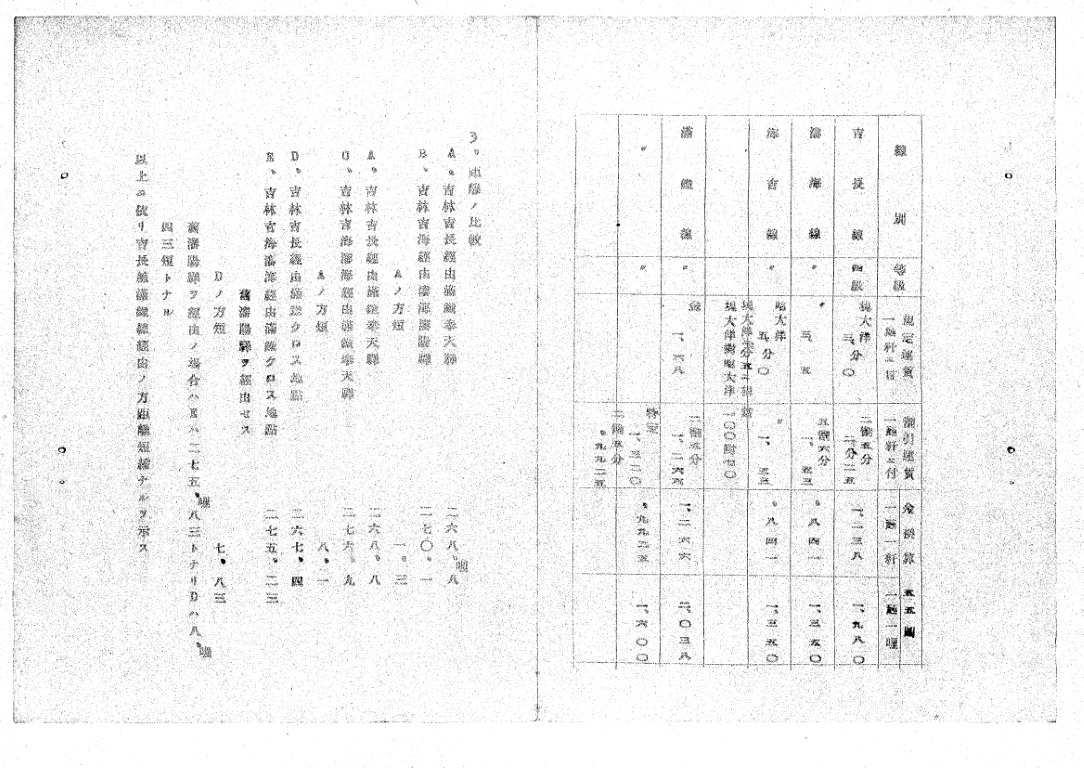 線別
等級
規定運賃
一瓲粁ニ付
割引運賃
一瓲粁ニ付
金換算
一瓲一粁
五五圓
一瓲一哩
吉長線
四級
現大洋
三分〇
二割五分
二分二五
一、二三八
一、九八〇
瀋海線
〃
三、五
五割六分
一、五三
・八四一
一、三五〇
海吉線
〃
五分〇
一、五三
・八四一
一、三五〇
現大洋對哈大洋
一〇〇對七〇
滿鐵線
〃
金
一、六八
二割五分
一、二六六
一、二六六
二、〇三八
〃
〃
特定
一、三二〇
二割五分
・九九二五
・九九二五
一、六〇〇
3。距離ノ比較
A、吉林吉長經由滿鐵奉天驛 二六八・八哩
B、吉林吉海經由瀋海瀋陽驛 二七〇・一
Aノ方短 一・三
A、吉林吉長經由滿鐵奉天驛 二六八・八
C、吉林吉海瀋海經由滿鐵奉天驛 二七六・九
Aノ方短 八・一
D、吉林吉長經由滿鐵クロス地點 二六七・四
E、吉林吉海瀋海經由滿鐵クロス地點 二七五・二三
舊瀋陽驛ヲ經由セス
Dノ方短 七・八三哩
舊瀋陽驛ヲ經由ノ場合ハEハ二七五・八三トナリDハ八・
四三短トナル
以上ニ依リ吉長線滿鐵線經由ノ方距離短縮ナルヲ示ス